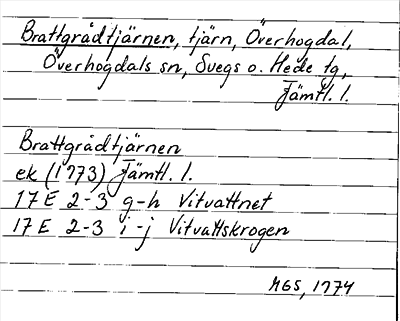 Brattgrådtjärnen, tjärn, Överhogdal,
Överhogdals sn, Svegs o. Hede tg,
Jämtl. l.
Brattgrådtjärnen
ek (1973) Jämtl. l.
17 E 2-3 g-h Vitvattnet
17 E 2-3 i-j Vitvattskrogen
MGS, 1974